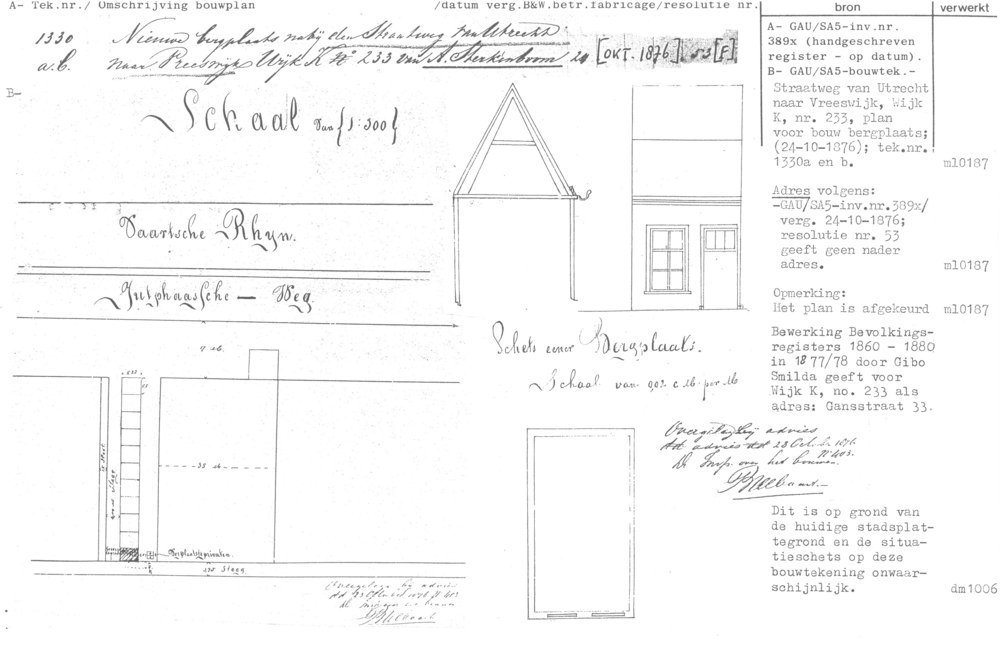 A- Tek.nr./ Omschrijving bouwplan /datum verg.B&W.betr.fabricage/resolutie nr. bron verwerkt
1330 Nieuwe bergplaats nabij den Straatweg van Utrecht
a.b. naar Vreeswijk Wijk K No 233 van A. Sterkenboom 24 [OKT. 1876] 53 [F]
B-
Schaal van {1:500}
Vaartsche Rhyn.
Jutphaassche - Weg.
35 M.
Verplaatste privaten.
Sloot
Schets eener Bergplaats.
Schaal van 0,02 c M. per M
Overgelegd bij advies
dd 23 Oct. 1876 N 403
Overgelegd bij advies
23 Oct. 1876
N 403.
De Insp. over het bouwen
A- GAU/SA5-inv.nr.
389x (handgeschreven
register - op datum).
B- GAU/SA5-bouwtek.-
Straatweg van Utrecht
naar Vreeswijk, Wijk
K, nr. 233, plan
voor bouw bergplaats;
(24-10-1876); tek.nr.
1330a en b. ml0187
Adres volgens:
-GAU/SA5-inv.nr.389x/
verg. 24-10-1876;
resolutie nr. 53
geeft geen nader
adres. ml0187
Opmerking:
Het plan is afgekeurd ml0187
Bewerking Bevolkings-
registers 1860 - 1880
in 1877/78 door Gibo
Smilda geeft voor
Wijk K, no. 233 als
adres: Gansstraat 33.
Dit is op grond van
de huidige stadsplat-
tegrond en de situa-
tieschets op deze
bouwtekening onwaar-
schijnlijk. dm1006